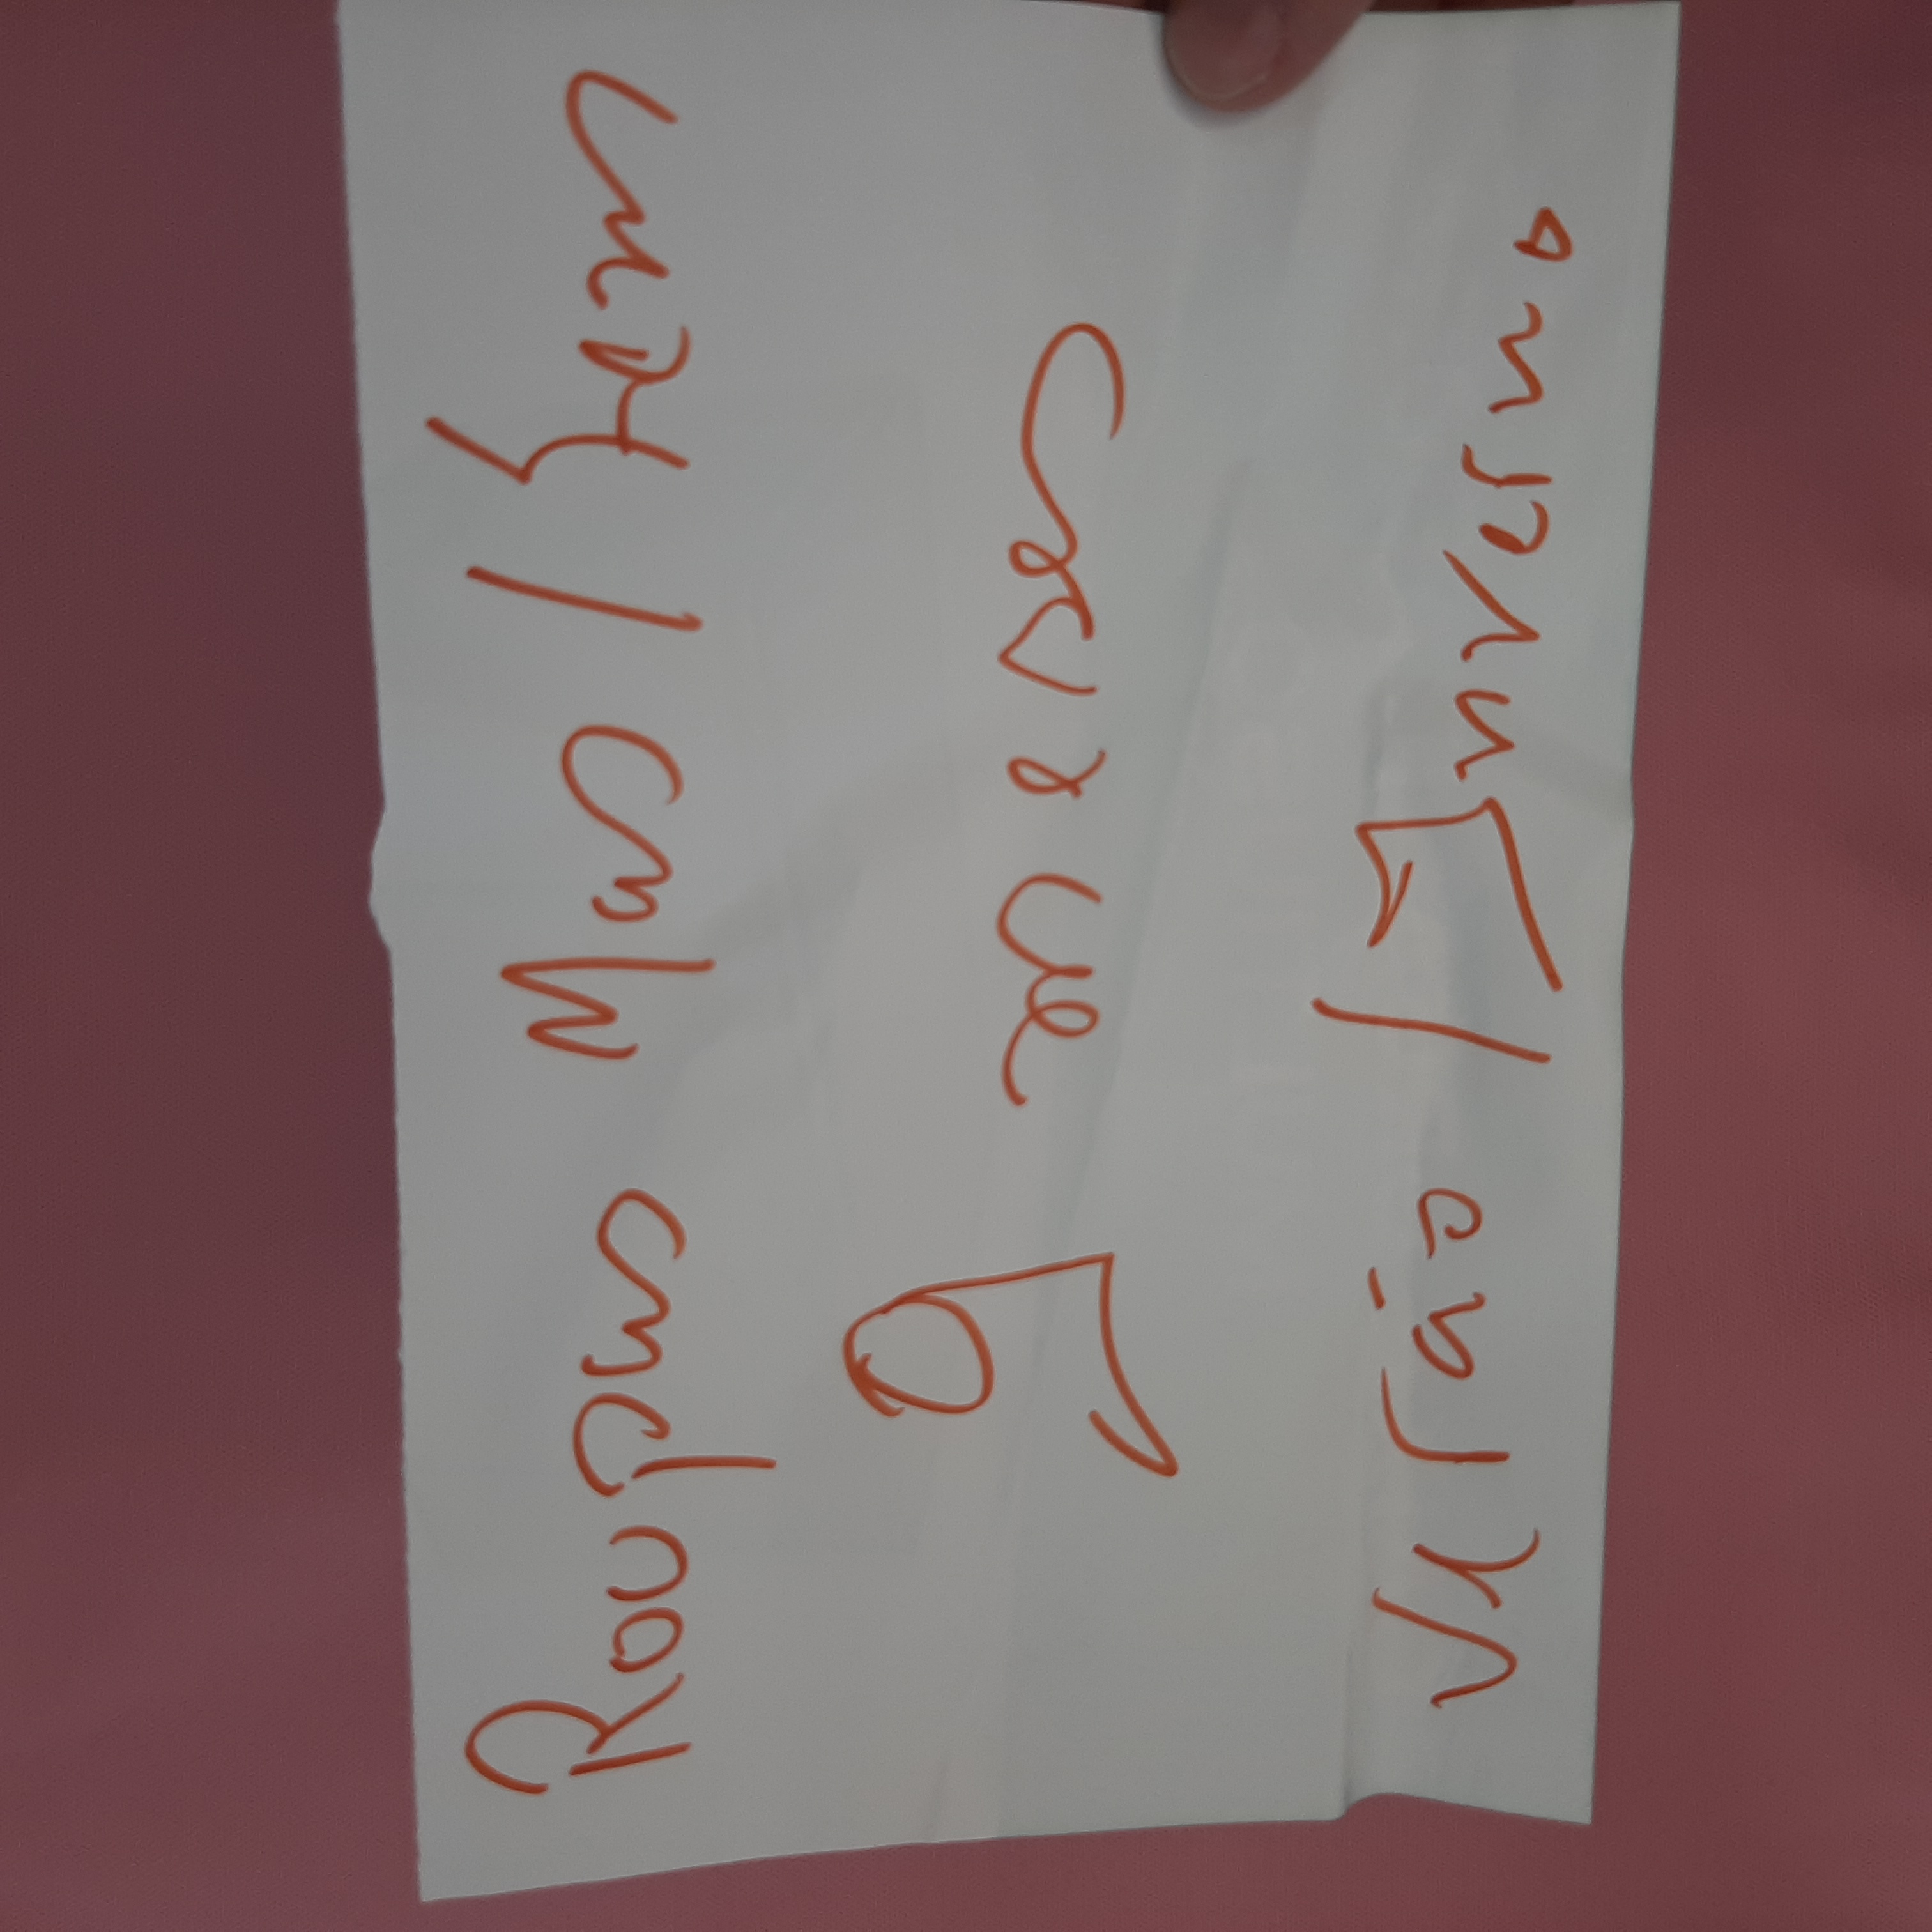 Roupas Mas / Fem
9 meses
Verão / Inverno